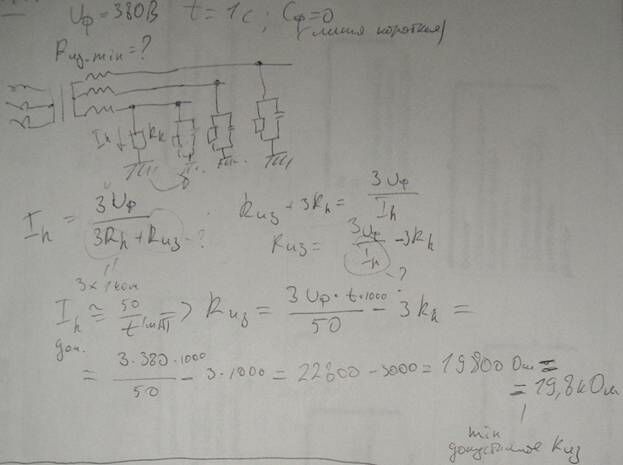 Uф = 380В t = 1с ; Cф = 0
(линия короткая)
Rиз.min = ?
Ih Rh
Ih = 3Uф / (3Rh + Rиз) - ?
3 × 1 кОм
Rиз + 3Rh = 3Uф / Ih
Rиз = 3Uф / Ih - 3Rh
?
Ih ≅ 50 / t (mA) => Rиз = 3Uф · t · 1000 / 50 - 3Rh =
доп.
= 3 · 380 · 1000 / 50 - 3 · 1000 = 22800 - 3000 = 19800 Ом =
= 19,8 кОм
min
допустимое Rиз